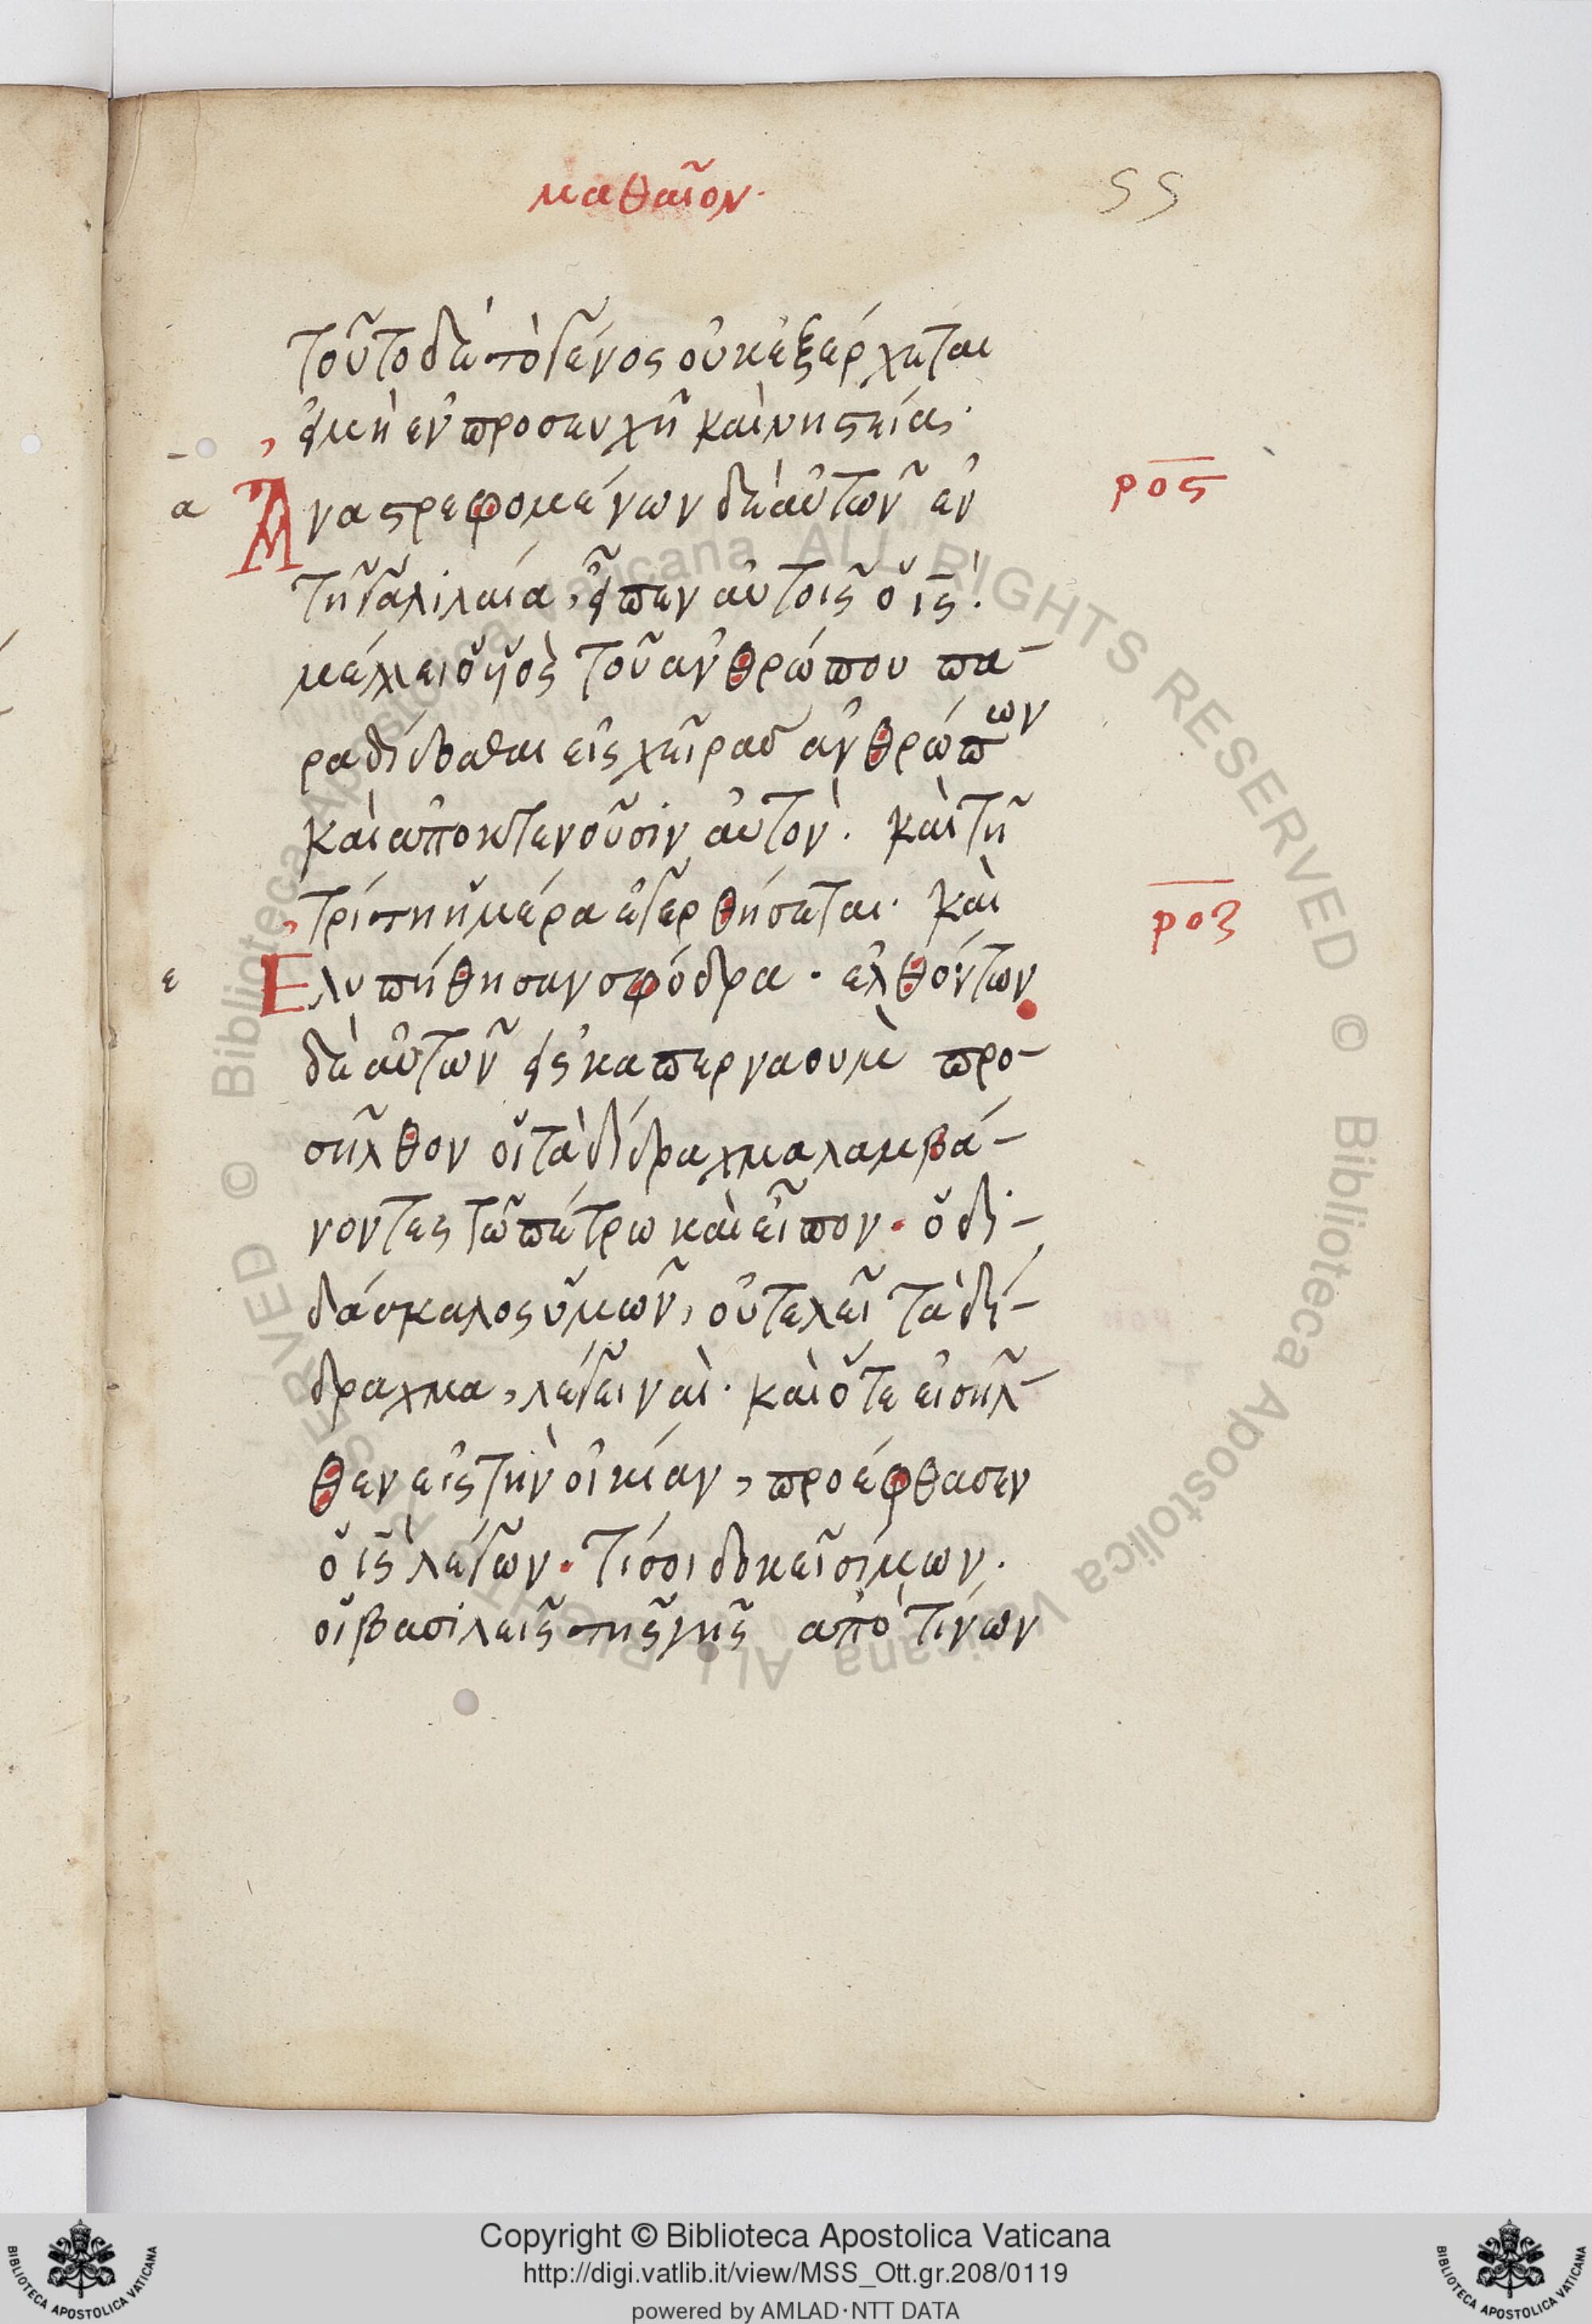 μαθαῖον·
55
τοῦτο δὲ τὸ γένος οὐκ ἐξέρχεται
εἰ μὴ ἐν προσευχῆ καὶ νηστείας·
Ἀναστρεφομένων δὲ αὐτῶν ἐν
ρος
α
τῆ γαλιλαία, εἶπεν αὐτοῖς ὁ ις·
μέλλει ὁ υἱὸς τοῦ ἀνθρώπου πα-
ραδίδοσθαι εἰς χεῖρας ἀνθρώπων
καὶ ἀποκτενοῦσιν αὐτὸν. καὶ τῆ
τρίτη ἡμέρα ἐγερθήσεται· καὶ
ροζ
ε
Ἐλυπήθησαν σφόδρα. ἐλθόντων
δὲ αὐτῶν εἰς καπεργαουμ προ-
σῆλθον οἱ τὰ δίδραχμα λαμβά-
νοντες τῶ πέτρω καὶ εἶπον. ὁ δι-
δάσκαλος ὑμῶν, οὐ τελεῖ τὰ δί-
δραχμα, λέγει ναὶ· καὶ ὅτε εἰσῆλ-
θεν εἰς τὴν οἰκίαν, προέφθασεν
ὁ ις λέγων. τί σοι δοκεῖ σίμων.
οἱ βασιλεῖς τῆς γῆς ἀπὸ τίνων
© Biblioteca Apostolica Vaticana ALL RIGHTS RESERVED
© Biblioteca Apostolica Vaticana ALL RIGHTS RESERVED
Copyright © Biblioteca Apostolica Vaticana
http://digi.vatlib.it/view/MSS_Ott.gr.208/0119
powered by AMLAD·NTT DATA
BIBLIOTECA APOSTOLICA VATICANA
BIBLIOTECA APOSTOLICA VATICANA